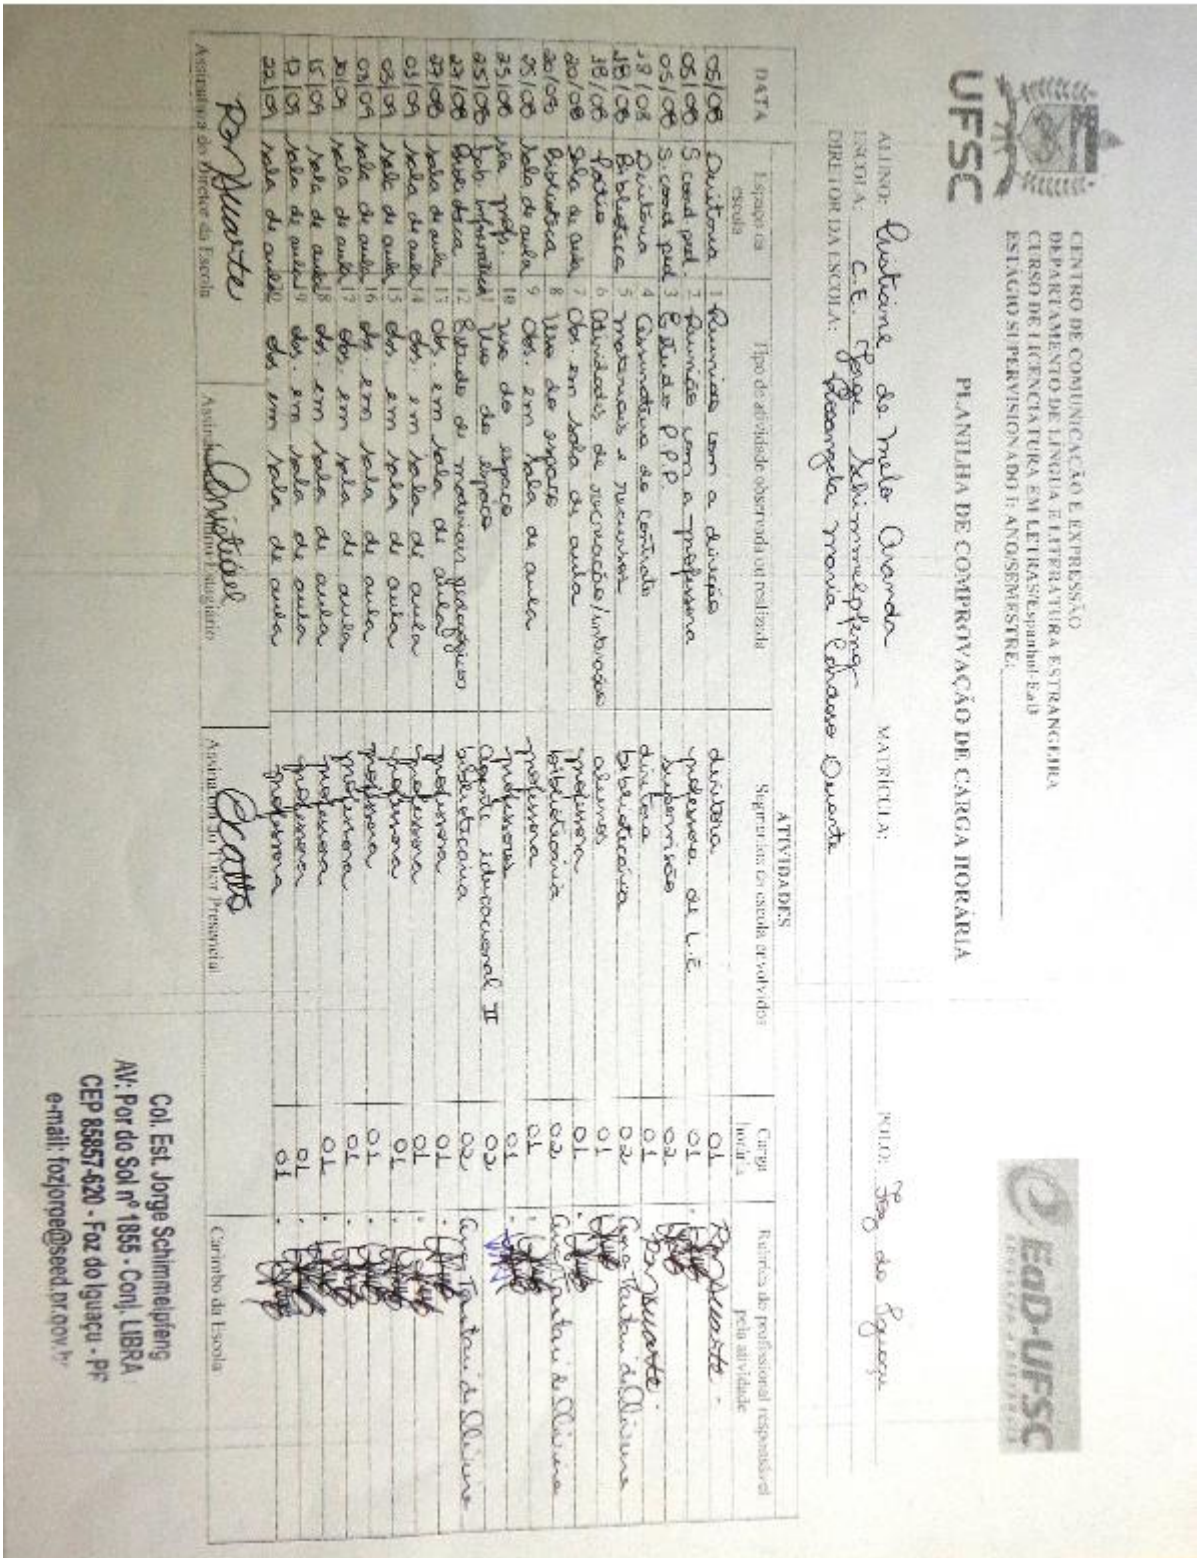 UFSC
CENTRO DE COMUNICAÇÃO E EXPRESSÃO
DEPARTAMENTO DE LÍNGUA E LITERATURA ESTRANGEIRA
CURSO DE LICENCIATURA EM LETRAS/Espanhol-EaD
ESTÁGIO SUPERVISIONADO I: ANO/SEMESTRE:
EaD-UFSC
EDUCAÇÃO A DISTÂNCIA
PLANILHA DE COMPROVAÇÃO DE CARGA HORÁRIA
ALUNO: de Melo Aranda MATRÍCULA: POLO: Foz do Iguaçu
ESCOLA: C.E. Jorge Schimmelpfeng
DIRETOR DA ESCOLA: Rosangela Maria Duarte
ATIVIDADES
DATA Espaço na escola Tipo de atividade observada ou realizada Segmentos da escola envolvidos Carga horária Rubrica do profissional responsável pela atividade
05/08 Diretoria 1 Reunião com a direção diretora 01
05/08 S. coord ped. 2 Reunião com a professora professora de L.E. 01
05/08 S. coord ped 3 Estudo P.P.P. supervisão 02
18/08 Diretoria 4 Assinatura do contrato diretora 01
18/08 Biblioteca 5 materiais e recursos bibliotecária 02
18/08 Patio 6 Atividades de recreação/interação alunos 01
20/08 Sala de aula 7 Obs. em sala de aula professora 01
20/08 Biblioteca 8 Uso do espaço bibliotecária 02
25/08 Sala de aula 9 Obs. em sala de aula professora 01
25/08 sla prof. 10 uso do espaço professores 01
25/08 Lab. informática 11 Uso do espaço Agente educacional II 02
27/08 Biblioteca 12 Estudo de materiais pedagógicos bibliotecária 02
27/08 sala de aula 13 obs. em sala de aula professora 01
03/09 sala de aula 14 obs. em sala de aula professora 01
03/09 sala de aula 15 obs. em sala de aula professora 01
03/09 sala de aula 16 obs. em sala de aula professora 01
10/09 sala de aula 17 obs. em sala de aula professora 01
15/09 sala de aula 18 obs. em sala de aula professora 01
17/09 sala de aula 19 obs. em sala de aula professora 01
22/09 sala de aula 20 obs em sala de aula professora 01
Assinatura do Diretor da Escola Assinatura do Aluno Estagiário Assinatura do Tutor Presencial Carimbo da Escola
Col. Est. Jorge Schimmelpfeng
AV: Por do Sol nº 1855 - Conj. LIBRA
CEP 85857-620 - Foz do Iguaçu - PR
e-mail: fozjorge@seed.pr.gov.br